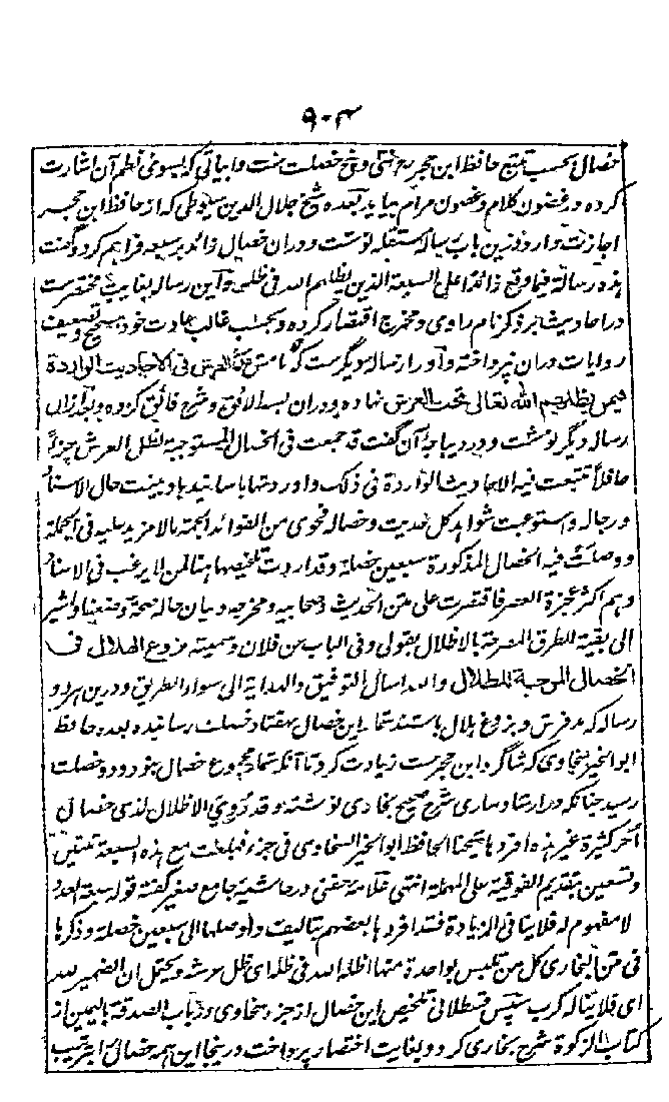 ۹۰۳
خصال بحسب تتبع حافظ ابن حجر منتهی و پنج خصلت ست و ابیاتی که بسوئ نظم آن اشارت
کرده در غضون کلام و غصون مرام بیاید بعده شیخ جلال الدین سیوطی که از حافظ ابن حجر
اجازت دارد درین باب رساله مستقله نوشت و دران خصال زائد بر سبعه فراهم کرد و گفت
هذه رسالة فیما وقع زائدا علی السبعة الذین یظلهم الله فی ظله و این رساله بغایت مختصرست
در احادیث بر ذکر نام راوی و مخرج اقتصار کرده و بحسب غالب عادت خود بتصحیح و تضعیف
روایات دران نپرداخته و او را رساله دیگرست که نامش فی الاحادیث الواردة
فیمن یظلهم الله تعالی تحت العرش نهاده و دران بسط لائق و شرح فائق کرده و بعد ازان
رساله دیگر نوشت و در دیباجه آن گفت قد جمعت فی الخصال المستوجبة لظل العرش جزءا
حافلا تتبعت فیه الاحادیث الواردة فی ذلک و اوردتها باسانیدها و بینت حال الاسناد
و رجاله و استوعبت شواهد کل حدیث و خصاله فحوی من الفوائد الجمة ما لا مزید علیه فی الجملة
و وصلت فیه الخصال المذکورة سبعین خصلة و قد اردت تلخیصها هنا لمن لا یرغب فی الاسناد
و هم اکثر عجزة العصر فاقتصرت علی متن الحدیث و صحابیه و مخرجه و بیان حاله صحة و ضعفا و اشیر
الی بقیة الطرق المصرحة بالاظلال بقولی و فی الباب عن فلان و سمیته بزوغ الهلال فی
الخصال الموجبة للظلال و الله اسال التوفیق و الهدایة الی سواء الطریق و درین هر دو
رساله که فرش و بزوغ هلال باشند شمار این خصال بهفتاد خصلت رسانیده بعده حافظ
ابو الخیر سخاوی که شاگرد ابن حجرست زیادت کرد تا آنکه شمار مجموع خصال بنود و دو خصلت
رسید چنانکه در ارشاد ساری شرح صحیح بخاری نوشته و قد روی الاظلال لذی خصال
اخر کثیرة غیر هذه افردها شیخنا الحافظ ابو الخیر السخاوی فی جزء فبلغت مع هذه السبعة ثنتین
و تسعین بتقدیم الفوقیة علی المهملة انتهی علامه حفنی در حاشیه جامع صغیر گفته قوله سبعة العدد
لا مفهوم له فلا ینافی الزیادة فقد افردها بعضهم بتالیف و اوصلها الی سبعین خصلة و ذکرها
فی متن البخاری کل من تلبس بواحدة منها اظله الله فی ظله ای ظل عرشه و یحتمل ان الضمیر لله
ای فلا یناله کرب سپس قسطلانی تلخیص این خصال از جزء سخاوی در باب الصدقة بالیمین از
کتاب الزکوة شرح بخاری کرد و بغایت اختصار پرداخت درینجا این همه خصال را بترتیب